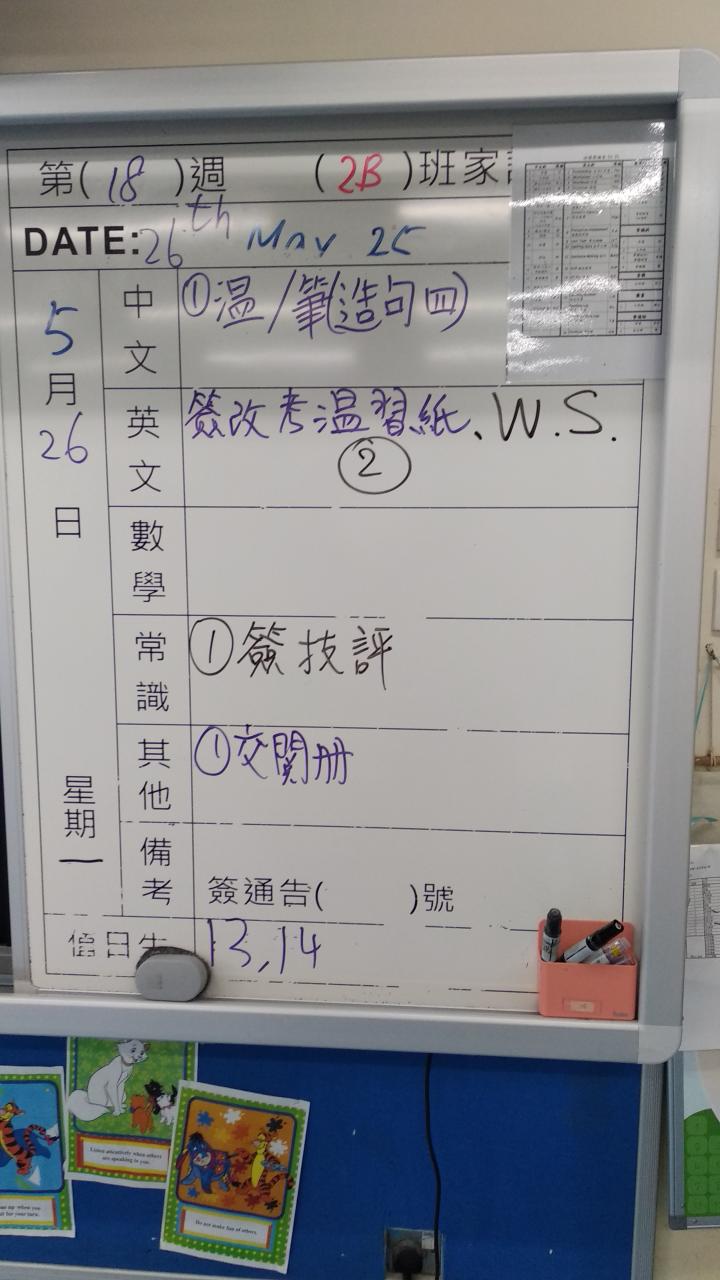 第(18)週 (2B)班家
DATE: 26th May 25
5月26日 星期一
中文 ①溫/筆(造句四)
英文 簽改考溫習紙、W.S.
②
數學
常識 ①簽技評
其他 ①交閱册
備考 簽通告( )號
值日生 13,14
Listen attentively when others
are speaking to you.
Do not make fun of others.